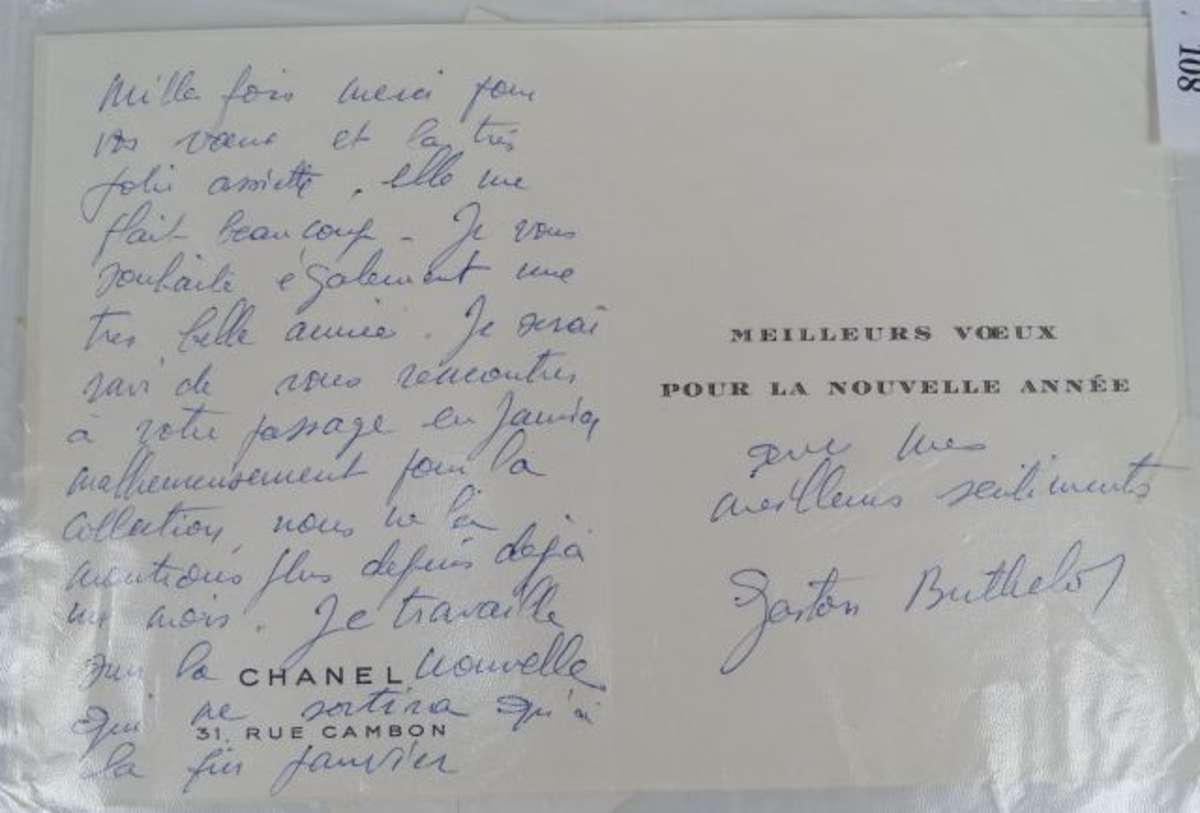 Mille fois merci pour
vos vœux et la très
jolie assiette, elle me
plaît beaucoup - Je vous
souhaite également une
très belle année. Je serai
ravi de vous rencontrer
à votre passage en Janvier
malheureusement pour la
collection, nous ne la
montrons plus depuis déjà
un mois. Je travaille
sur la nouvelle
qui ne sortira qu'à
la fin janvier
CHANEL
31, RUE CAMBON
MEILLEURS VŒUX
POUR LA NOUVELLE ANNÉE
avec mes
meilleurs sentiments
Gaston Berthelot
108